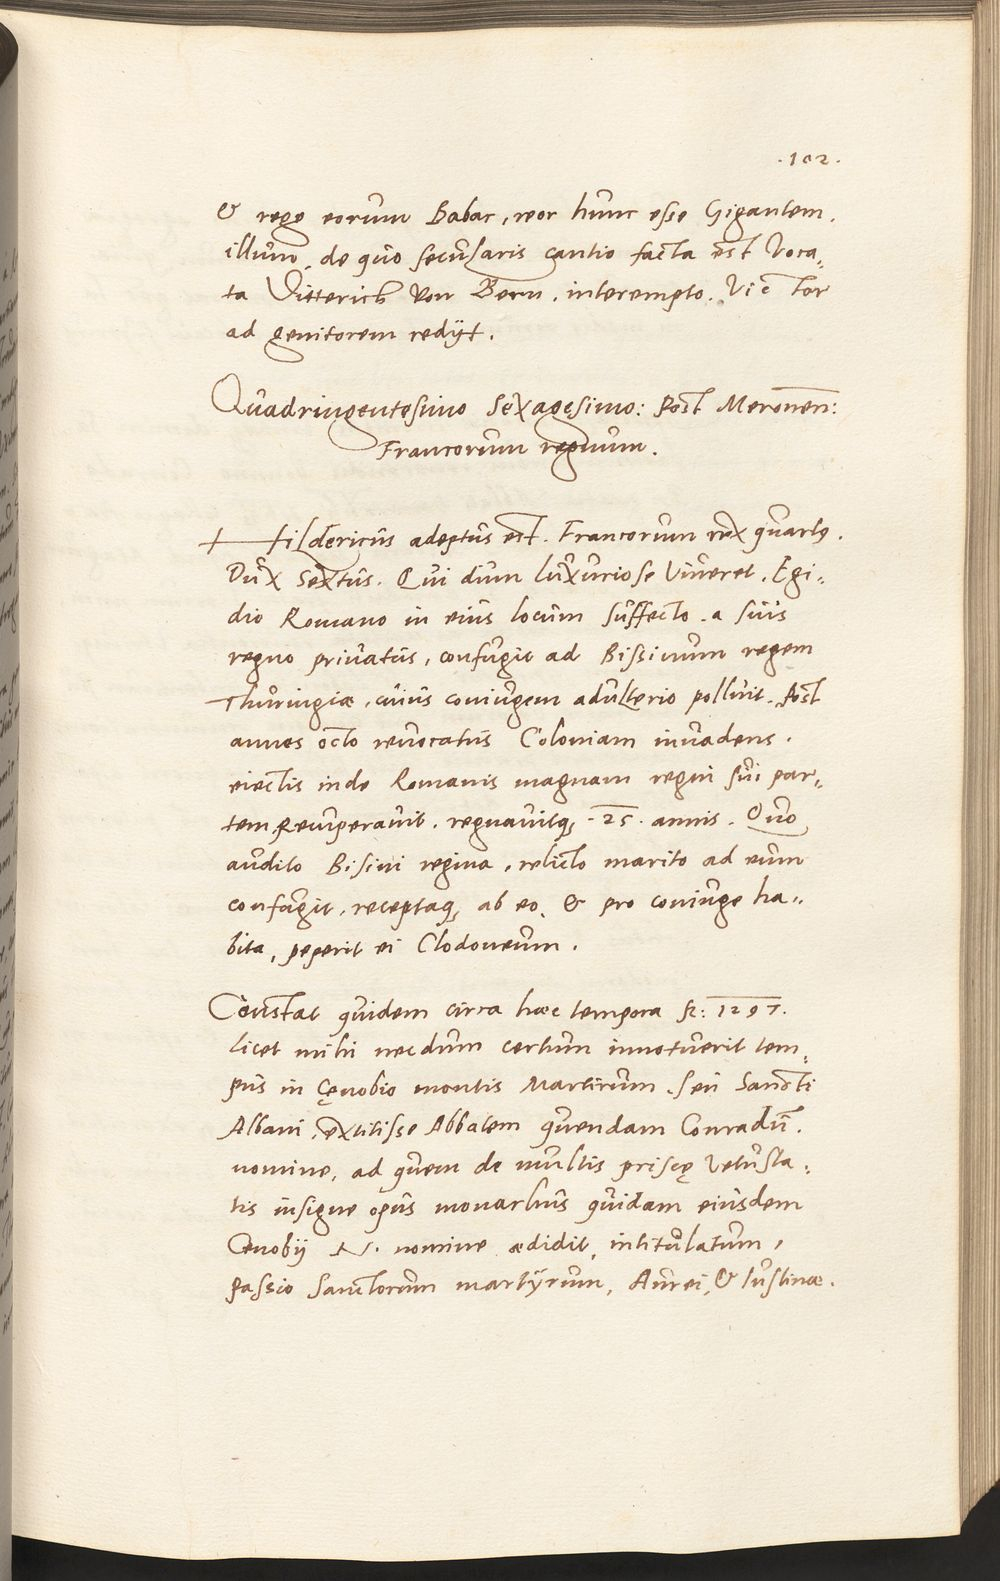 .102.
& rege eorum Babac, reor hunc esse Gigantem.
illum, de quo secularis cantio facta est Voca„
ta Ditterich von Bern. interempto. Victor
ad genitorem redijt.
Quadringentesimo Sexagesimo: Post Meronen:
Francorum regnum.
Hildericus adeptus est. Francorum rex quartus.
Dux Sextus. Qui dum luxuriose Viueret. Egi„
dio Romano in eius locum suffecto. a suis
regno priuatus, confugit ad Bissinum regem
Thuringiæ, cuius coniugem adulterio polluit. Post
annos octo reuocatus Coloniam inuadens.
eiectis inde Romanis magnam regni sui par„
tem Recuperauit. regnauitq, .25. annis. Quo
audito Bisini regina, relicto marito ad eum
confugit, receptaq, ab eo, & pro coniuge ha„
bita, peperit ei Clodoueum.
Constat quidem circa hæc tempora 1297.
licet mihi necdum certum innotuerit tem„
pus in Cęnobio montis Martirum. seu Sancti
Albani, extitisse Abbatem quendam Conradū.
nomine, ad quem de multis priscę Vetusta„
tis insigne opus monachus quidam eiusdem
Cenobij N. nomine ædidit, intitulatum,
passio Sanctorum martÿrum, Aurei, & Iustinæ.